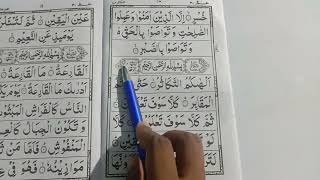 خُسْرٍ ۙ اِلَّا الَّذِيْنَ اٰمَنُوْا وَعَمِلُوا
الصّٰلِحٰتِ وَتَوَاصَوْا بِالْحَقِّ ۙ
وَتَوَاصَوْا بِالصَّبْرِ
بِسْمِ اللّٰهِ الرَّحْمٰنِ الرَّحِيْمِ
اَلْهٰىكُمُ التَّكَاثُرُ ۙ حَتّٰى
الْمَقَابِرَ ؕ كَلَّا سَوْفَ
ثُمَّ كَلَّا سَوْفَ
كَلَّا لَوْ
لَتَرَوُنَّ
عَيْنَ الْيَقِيْنِ ۙ ثُمَّ
يَوْمَئِذٍ عَنِ النَّعِيْمِ
بِسْمِ اللّٰهِ الرَّحْمٰنِ الرَّحِيْمِ
اَلْقَارِعَةُ ۙ مَا
اَدْرٰىكَ مَا الْقَارِعَةُ
النَّاسُ كَالْفَرَاشِ الْمَبْثُوْثِ
وَتَكُوْنُ الْجِبَالُ كَالْعِهْنِ
الْمَنْفُوْشِ ؕ فَاَمَّا مَنْ
مَوَازِيْنُهٗ ۙ فَهُوَ فِيْ